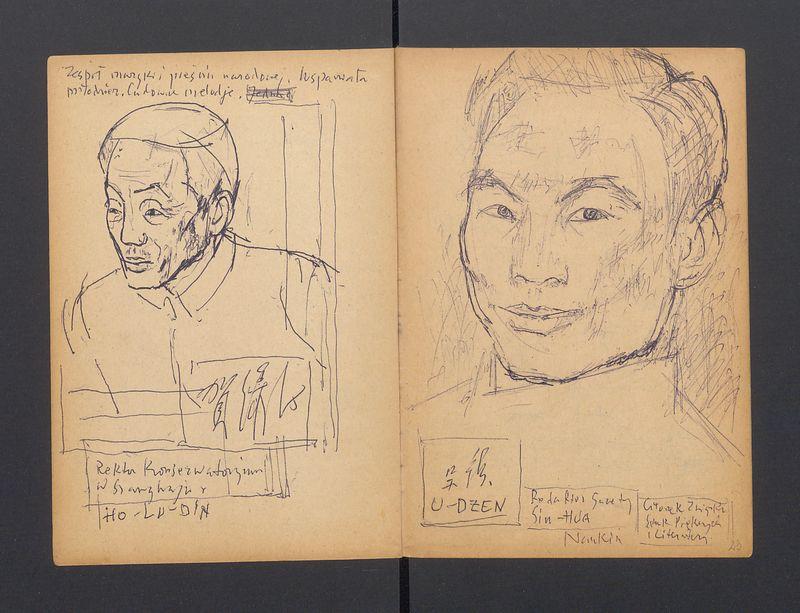 Zespół muzyki i pieśni narodowej. Wspaniała
młodzież. Cudowne melodje.
賀渌汀
Rektor Konserwatorjum
w Szanghaju
HO-LU-DIN
吴
U-DZEN
Redaktor Gazety
Sin-HUA
Nankin
Członek Związku
Sztuk Pięknych
i Literatury